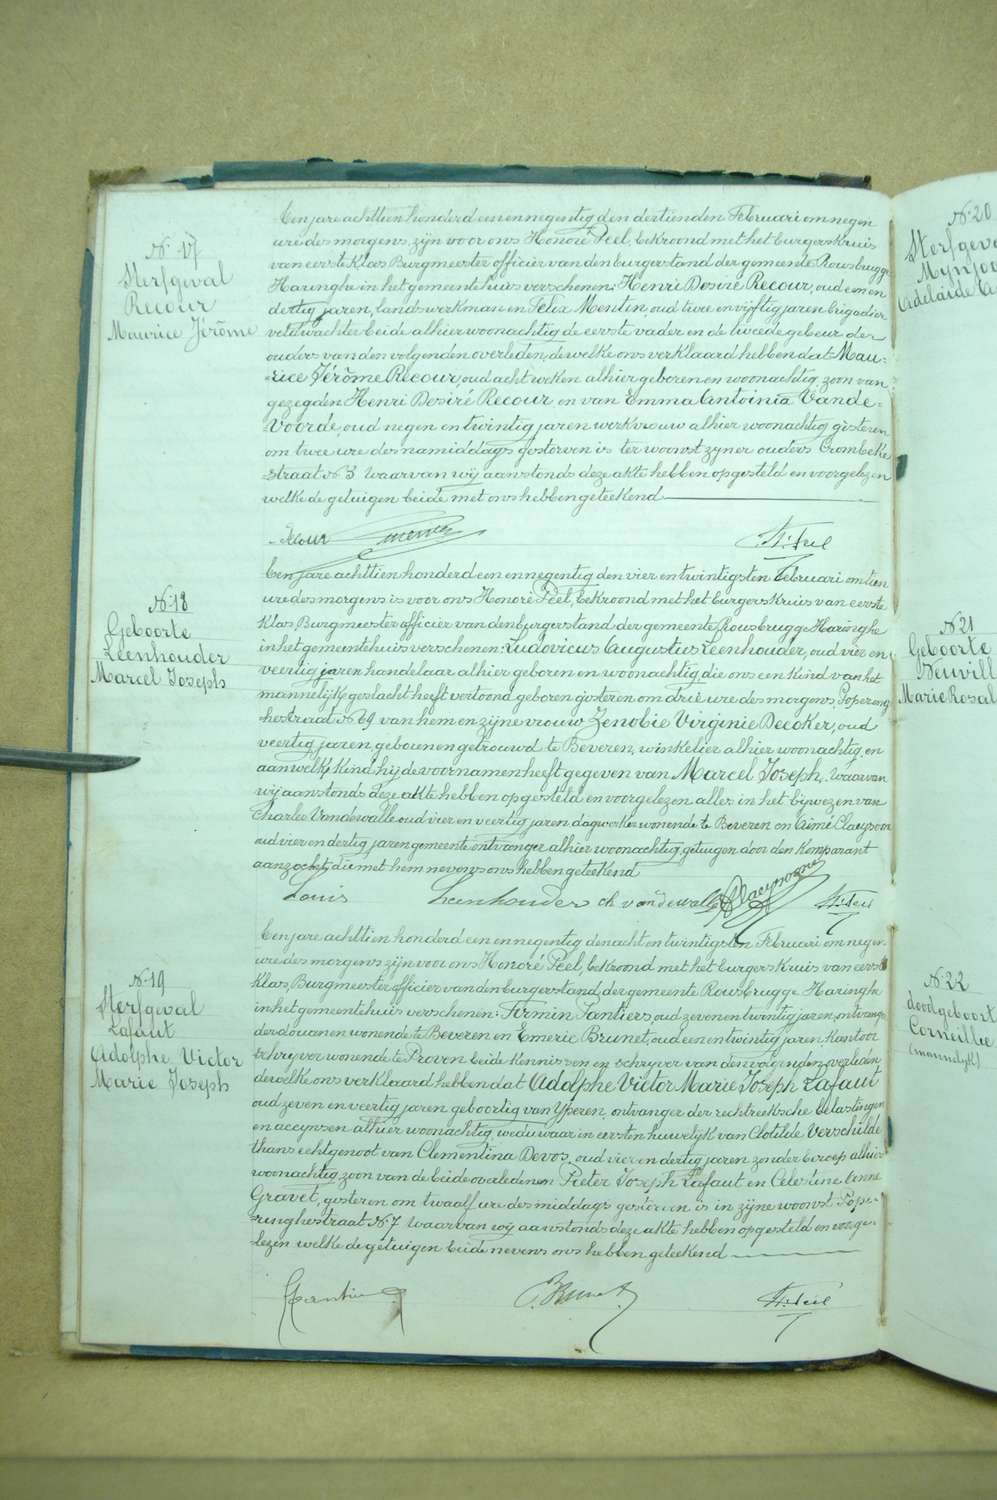 N. 17
Sterfgeval
Recour
Maurice Jérôme
Een jare achttien honderd een en negentig den dertienden Februari om negen
ure des morgens, zijn voor ons Honoré Peel, bekroond met het burgerskruis
van eerste klas Burgmeester officier van den burgerstand der gemeente Rousbrugge
Haringhe in het gemeentehuis verschenen: Henri Desiré Recour, oud een en
dertig jaren, landswerkman en Felix Mentin, oud twee en vijftig jaren brigadier
veldwachter beide alhier woonachtig de eerste vader en de tweede gebeur der
ouders van den volgenden overleden, dewelke ons verklaard hebben dat Mau-
rice Jérôme Recour, oud acht weken alhier geboren en woonachtig, zoon van
gezegden Henri Desiré Recour en van Emma Antoinia Vande-
Voorde, oud negen en twintig jaren werkvrouw alhier woonachtig gisteren
om twee ure des namiddags gestorven is ter woonst zyner ouders Crombeke
straat No 3 waarvan wij aanstonds deze akte hebben opgesteld en voorgelezen
welke de getuigen beide met ons hebben geteekend
Recour H. Peel
N. 18
Geboorte
Leenhouder
Marcel Joseph
Een jare achttien honderd een en negentig den vier en twintigsten Februari om tien
ure des morgens is voor ons Honoré Peel, bekroond met het burgerskruis van eerste
klas, Burgmeester officier van den burgerstand der gemeente Rousbrugge Haringhe
in het gemeentehuis verschenen: Ludovicus Augustus Leenhouder, oud vier en
veertig jaren handelaar alhier geboren en woonachtig die ons een kind van het
mannelijk geslacht heeft vertoond geboren gisteren om drie ure des morgens, Poperong
hestraat No 69 van hem en zijne vrouw Zenobie Virginie Decker, oud
veertig jaren, geboren en getrouwd te Beveren, winkelier alhier woonachtig, en
aan welk kind hij de voornamen heeft gegeven van Marcel Joseph, Waarvan
wij aanstonds deze akte hebben opgesteld en voorgelezen alles in het bijwezen van
Charles Vandewalle oud vier en veertig jaren dagwerker wonende te Beveren en Aimé Claeysoon
oud vier en dertig jaren gemeente ontvanger alhier woonachtig getuigen door den komparant
aanzocht, die met hem nevens ons hebben geteekend
Louis Leenhouder ch vandewalle A Claeysoone H. Peel
N. 19
Sterfgeval
Lafaut
Adolphe Victor
Marie Joseph
Een jare achttien honderd een en negentig den acht en twintigsten Februari om negen
ure des morgens zijn voor ons Honoré Peel, bekroond met het burgers kruis van eerste
klas, Burgmeester officier van den burgerstand der gemeente Rousbrugge Haringhe
in het gemeentehuis verschenen: Firmin Pantiers, oud zeven en twintig jaren, ontvanger
der douanen wonende te Beveren en Emeric Brunet, oud een en twintig jaren, kantoor
schrijver wonende te Proven beide kennissen en schrijver van den volgenden overleden
dewelke ons verklaard hebben dat Adolphe Victor Marie Joseph Lafaut
oud zeven en veertig jaren geboortig van Yperen, ontvanger der rechtreeksche belastingen
en accynsen alhier woonachtig, weduwaar in eersten huwelijk van Clotilde Verschilde
thans echtgenoot van Clementina Devos, oud vier en dertig jaren zonder beroep alhier
woonachtig, zoon van de beide overledenen Pieter Joseph Lafaut en Celestine Anne
Gravet, gisteren om twaalf ure des middags gestorven is in zijne woonst Pope-
ringhestraat No 7 waarvan wij aanstonds deze akte hebben opgesteld en voorge-
lezen welke de getuigen beide nevens ons hebben geteekend
E. Brunet H. Peel
N. 20
Sterfgeva
Mynjoo
Adelaïde
N. 21
Geboorte
Neuvill
Marie Rosal
N. 22
doodgeboort
Corneillie
(mannelijk)